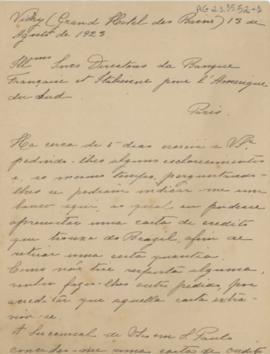 AG 23.35.52-3
Vichy (Grand Hotel des Bains) 13 de
Agosto de 1923
Illmos Snres Directores da Banque
Française et Italienne pour l'Amerique
du Sud
Paris.
Ha cerca de 5 dias escrevi a VSas
pedindo-lhes alguns esclarecimentos
e, ao mesmo tempo, perguntando-
lhes se podiam indicar-me um
banco aqui, ao qual eu podesse
apresentar uma carta de credito
que trouxe do Brazil, afim de
retirar uma certa quantia.
Como não tive resposta alguma,
venho fazer-lhes outro pedido, por
acreditar que aquella carta extra-
viou-se.
A Succursal de VSas em S. Paulo
concedeu-me uma carta de credito